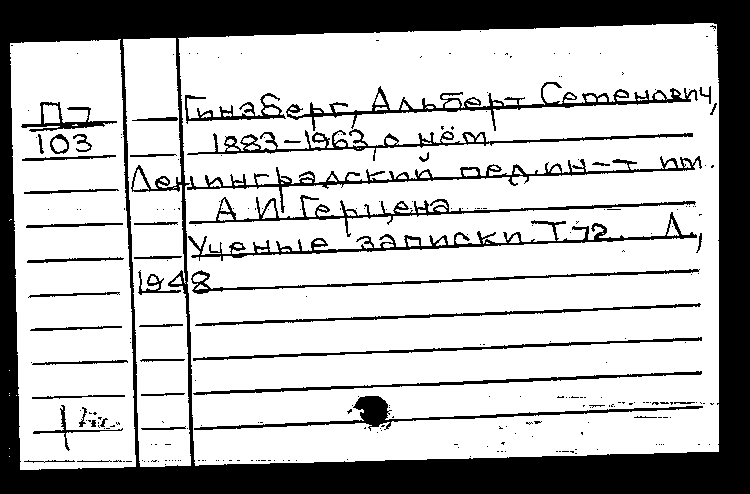 П-7
103
Гинзберг, Альберт Семенович,
1883-1963, о нём.
Ленинградский пед. ин-т им.
А.И.Герцена.
Ученые записки. Т.72. Л.,
1948